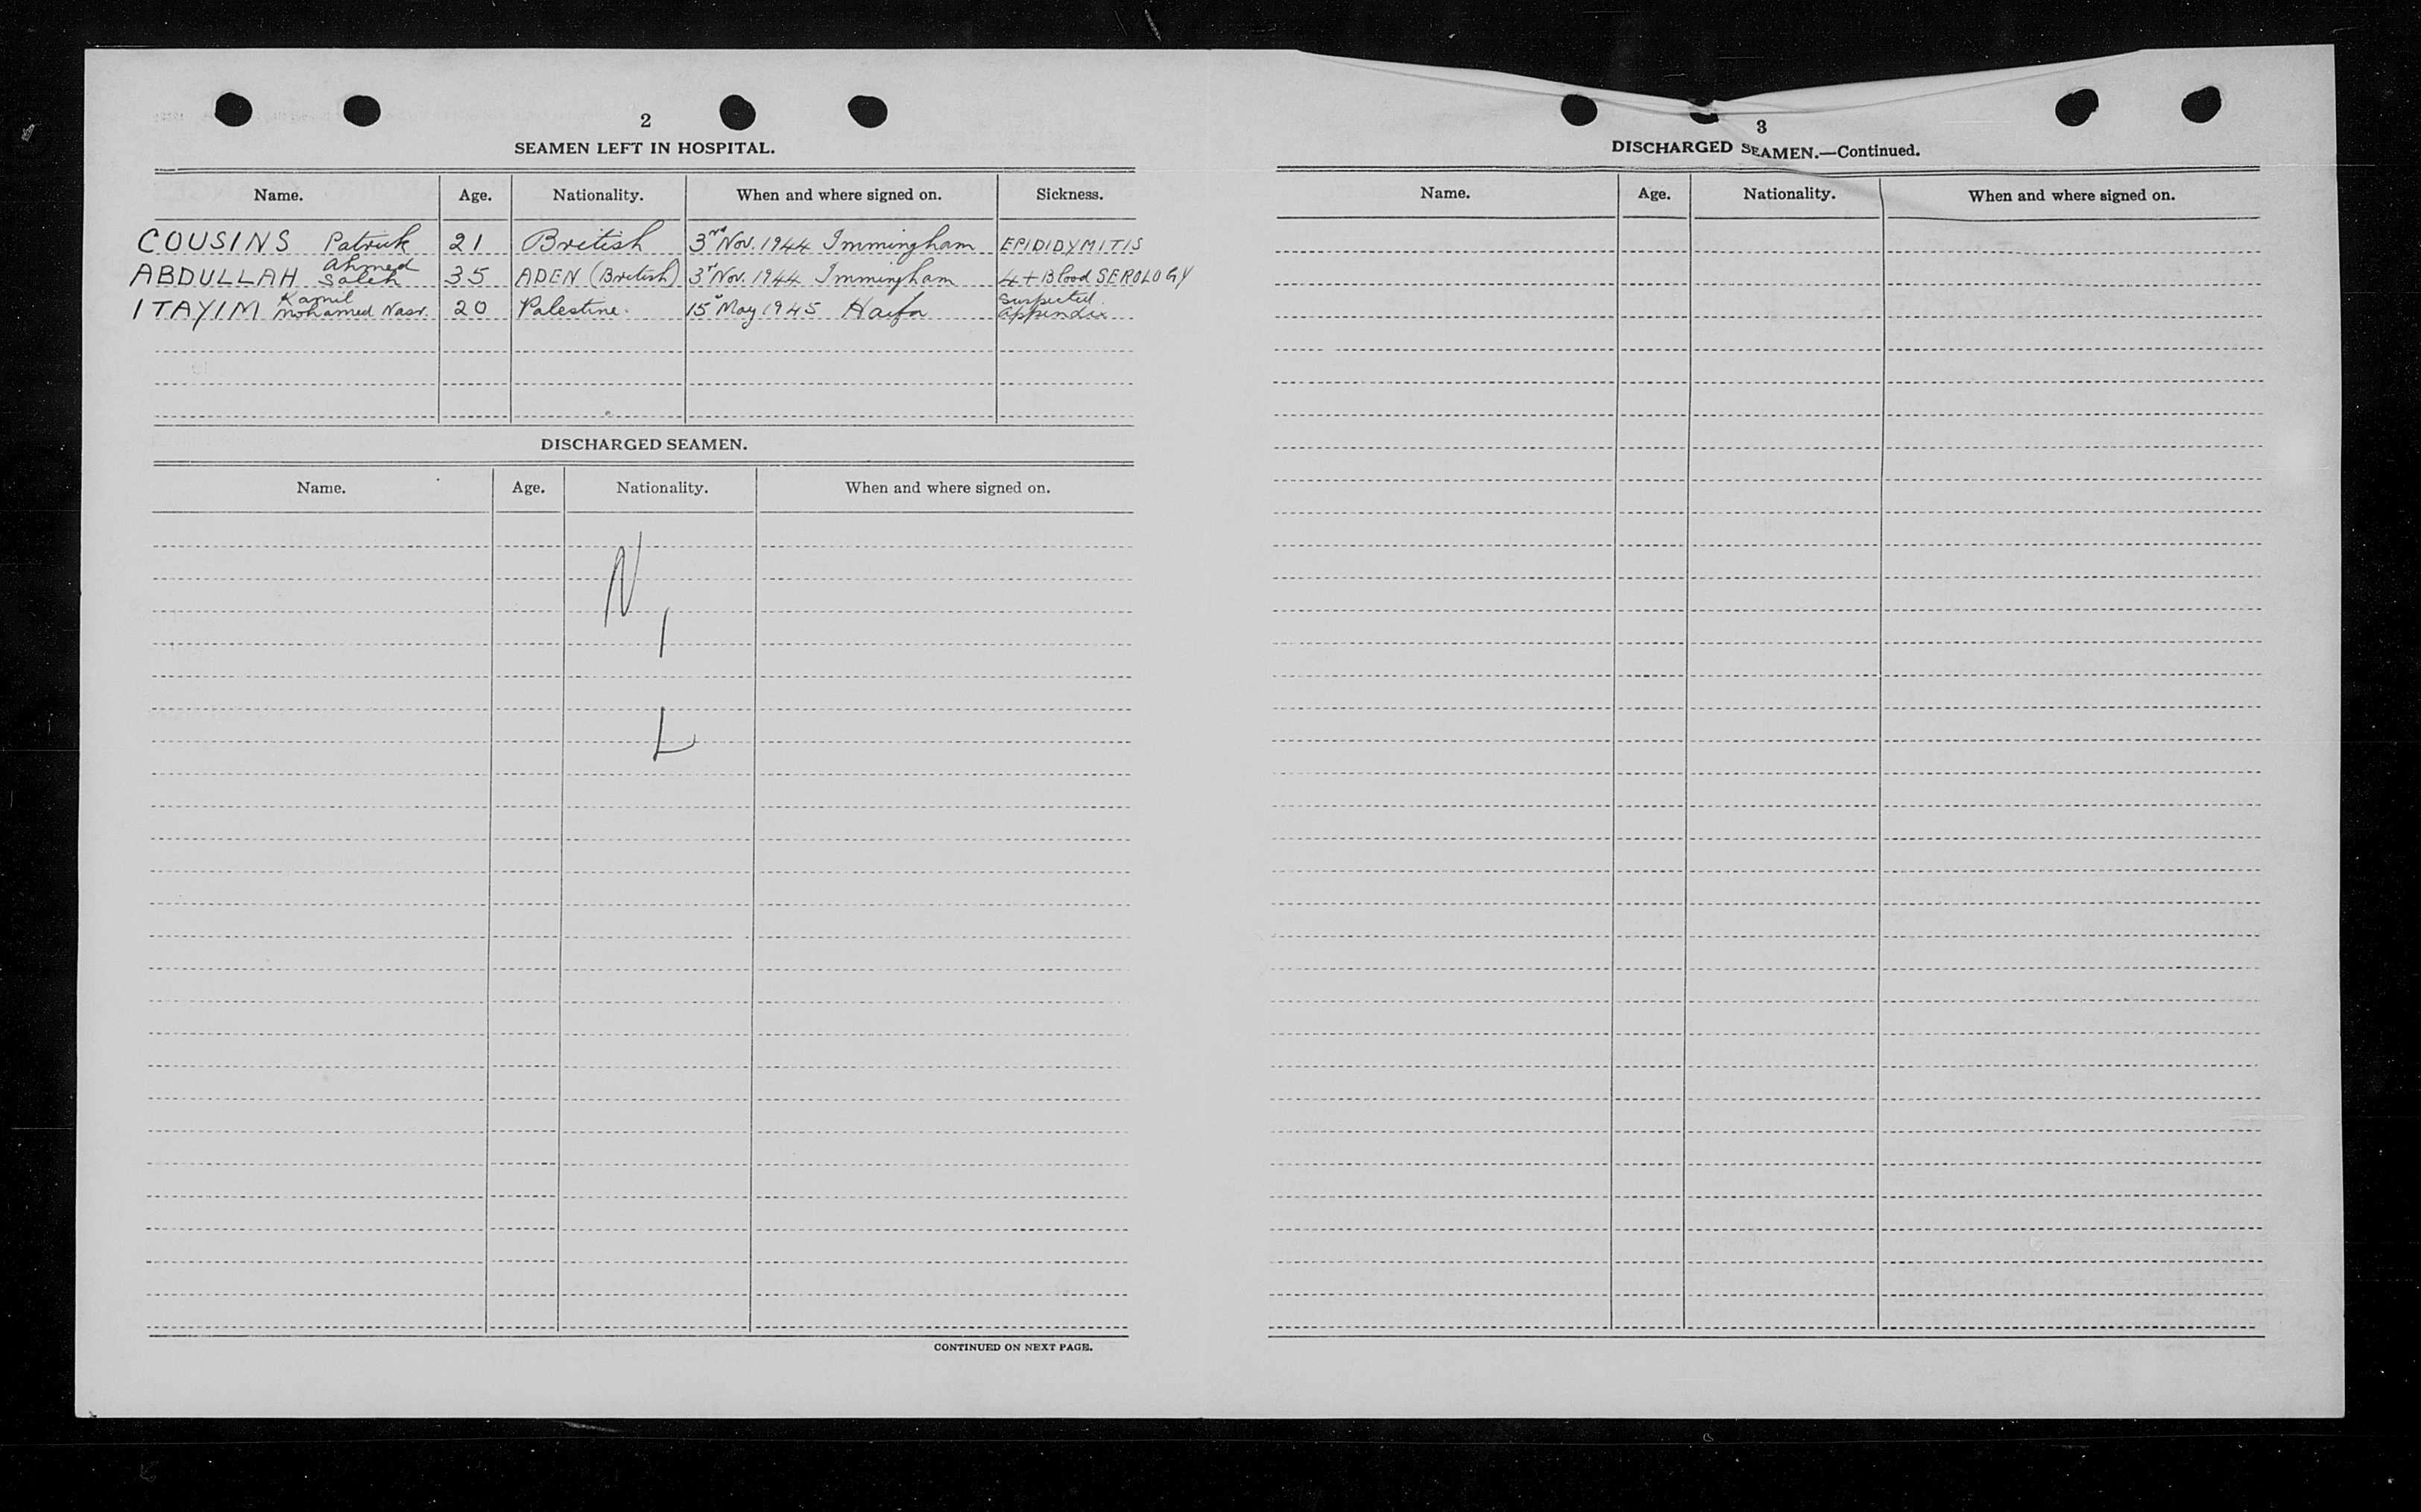 2
SEAMEN LEFT IN HOSPITAL.
Name. Age. Nationality. When and where signed on. Sickness.
COUSINS Patrick 21 British 3rd Nov. 1944 Immingham EPIDIDYMITIS
ABDULLAH Ahmed Saleh 35 ADEN (British) 3rd Nov. 1944 Immingham 4+ Blood SEROLOGY
ITAYIM Kamil Mohamed Nasr. 20 Palestine. 15 May 1945 Haifa Suspected Appendix
DISCHARGED SEAMEN.
Name. Age. Nationality. When and where signed on.
N
I
L
CONTINUED ON NEXT PAGE.
3
DISCHARGED SEAMEN.—Continued.
Name. Age. Nationality. When and where signed on.